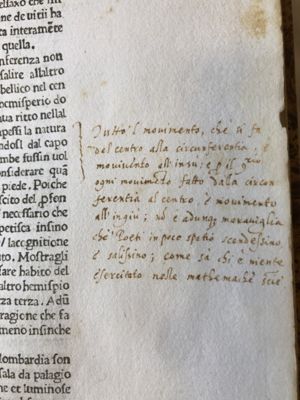 ellaxo che im
de uitii ha
ta interamẽte
quella.
nferenza non
salire allaltro
bellico nel cen
hemisperio do
ua ritto nellal
peſſi la natura
ndosi dal capo
mbe fussin uol
onsiderare quã
piede. Poiche
scito del ꝓfon
necessario che
petisca insino
/ lacognitione
to. Mostragli
fare habito del
altro hemisper
za terza. Adũ
ragione che fa
meno insinche
ombardia son
sala da palagio
he et luminose
Tutto'l mouimento, che si fa
dal centro alla circunferentia, è
mouimẽto all'insu; e p il
ogni mouimẽto fatto dalla circon
ferentia al centro, è mouimento
all'ingiu; nõ è adunq; marauiglia
che Poeti in poco spatio scendessino,
e salissino; come sa chi è niente
esercitato nelle mathematiche